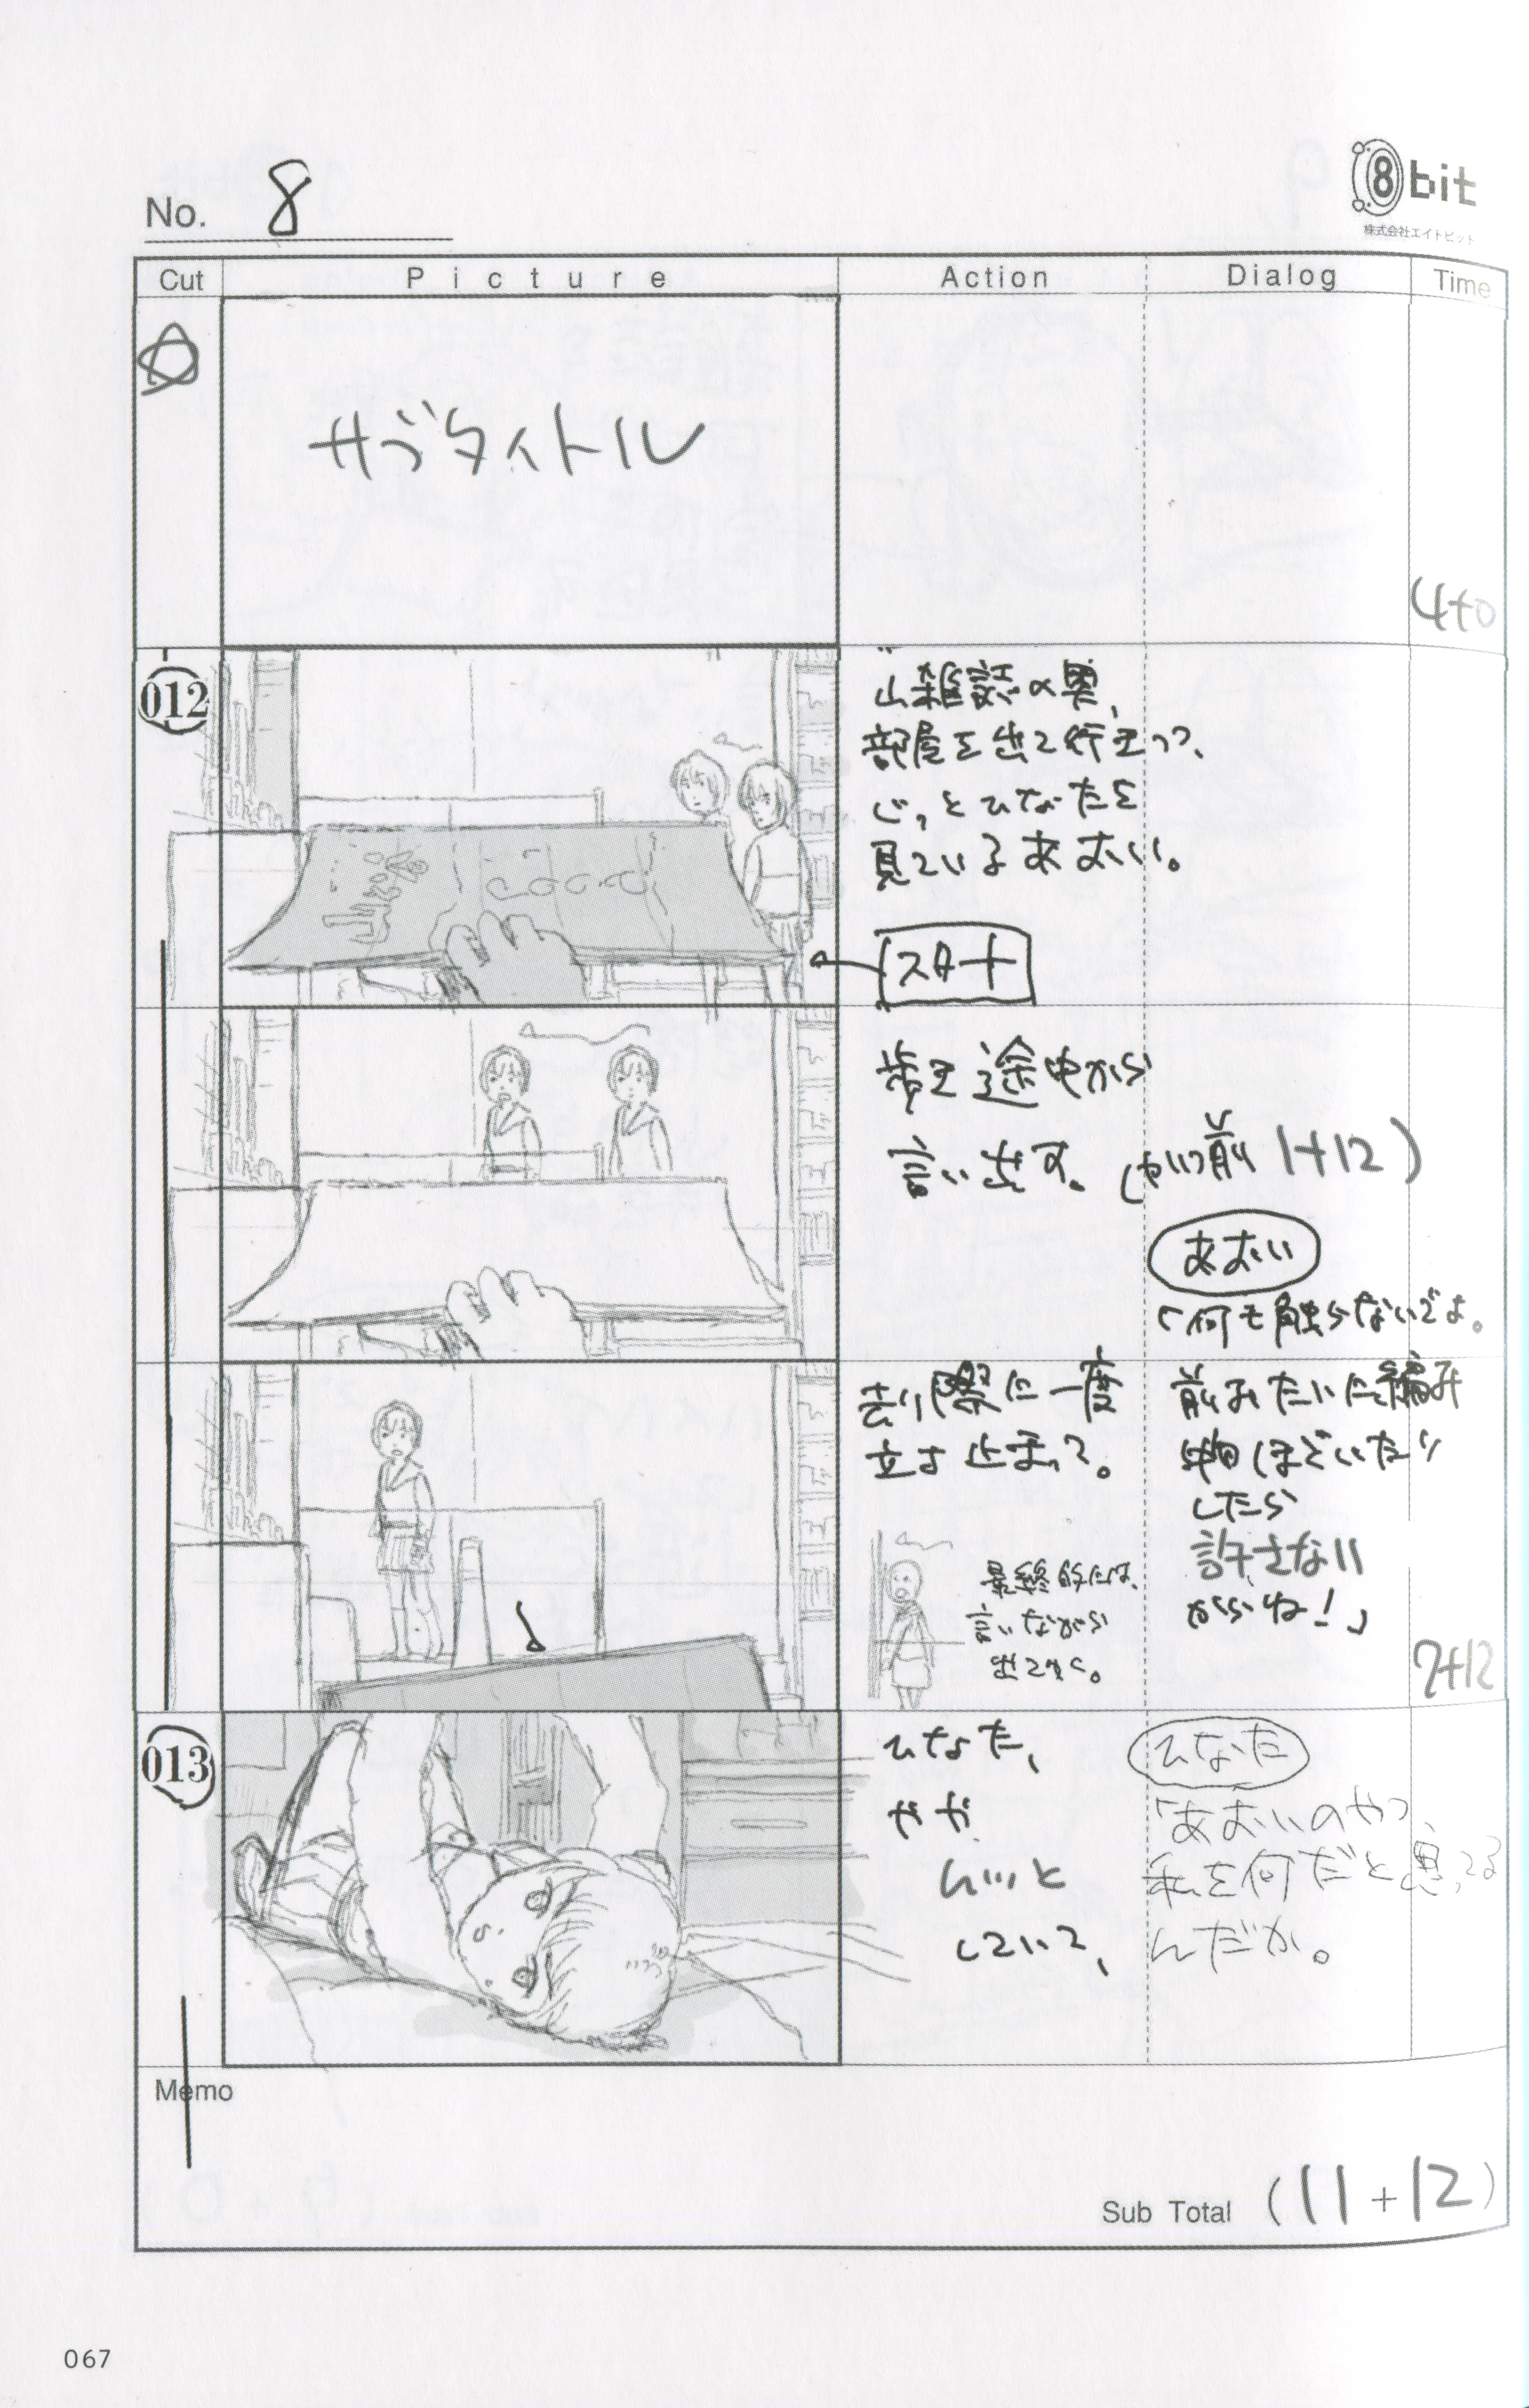 No. 8
8bit
株式会社エイトビット
Cut Picture Action Dialog Time
サブタイトル
4+0
012
山雑誌の奥、
部屋を出て行きつつ、
じっとひなたを
見ているあおい。
スタート
歩き途中から
言い出す。(セリフ前 1+12)
あおい
「何も触らないでよ。
去り際に一度
立ち止まって。
最終的には、
言いながら
出てゆく。
前みたいに編み
物ほどいたり
したら
許さない
からね!」
7+12
013
ひなた、
やや
ムッと
していて、
ひなた
「あおいのやつ
私を何だと思ってる
んだか。
Memo
Sub Total (11+12)
067